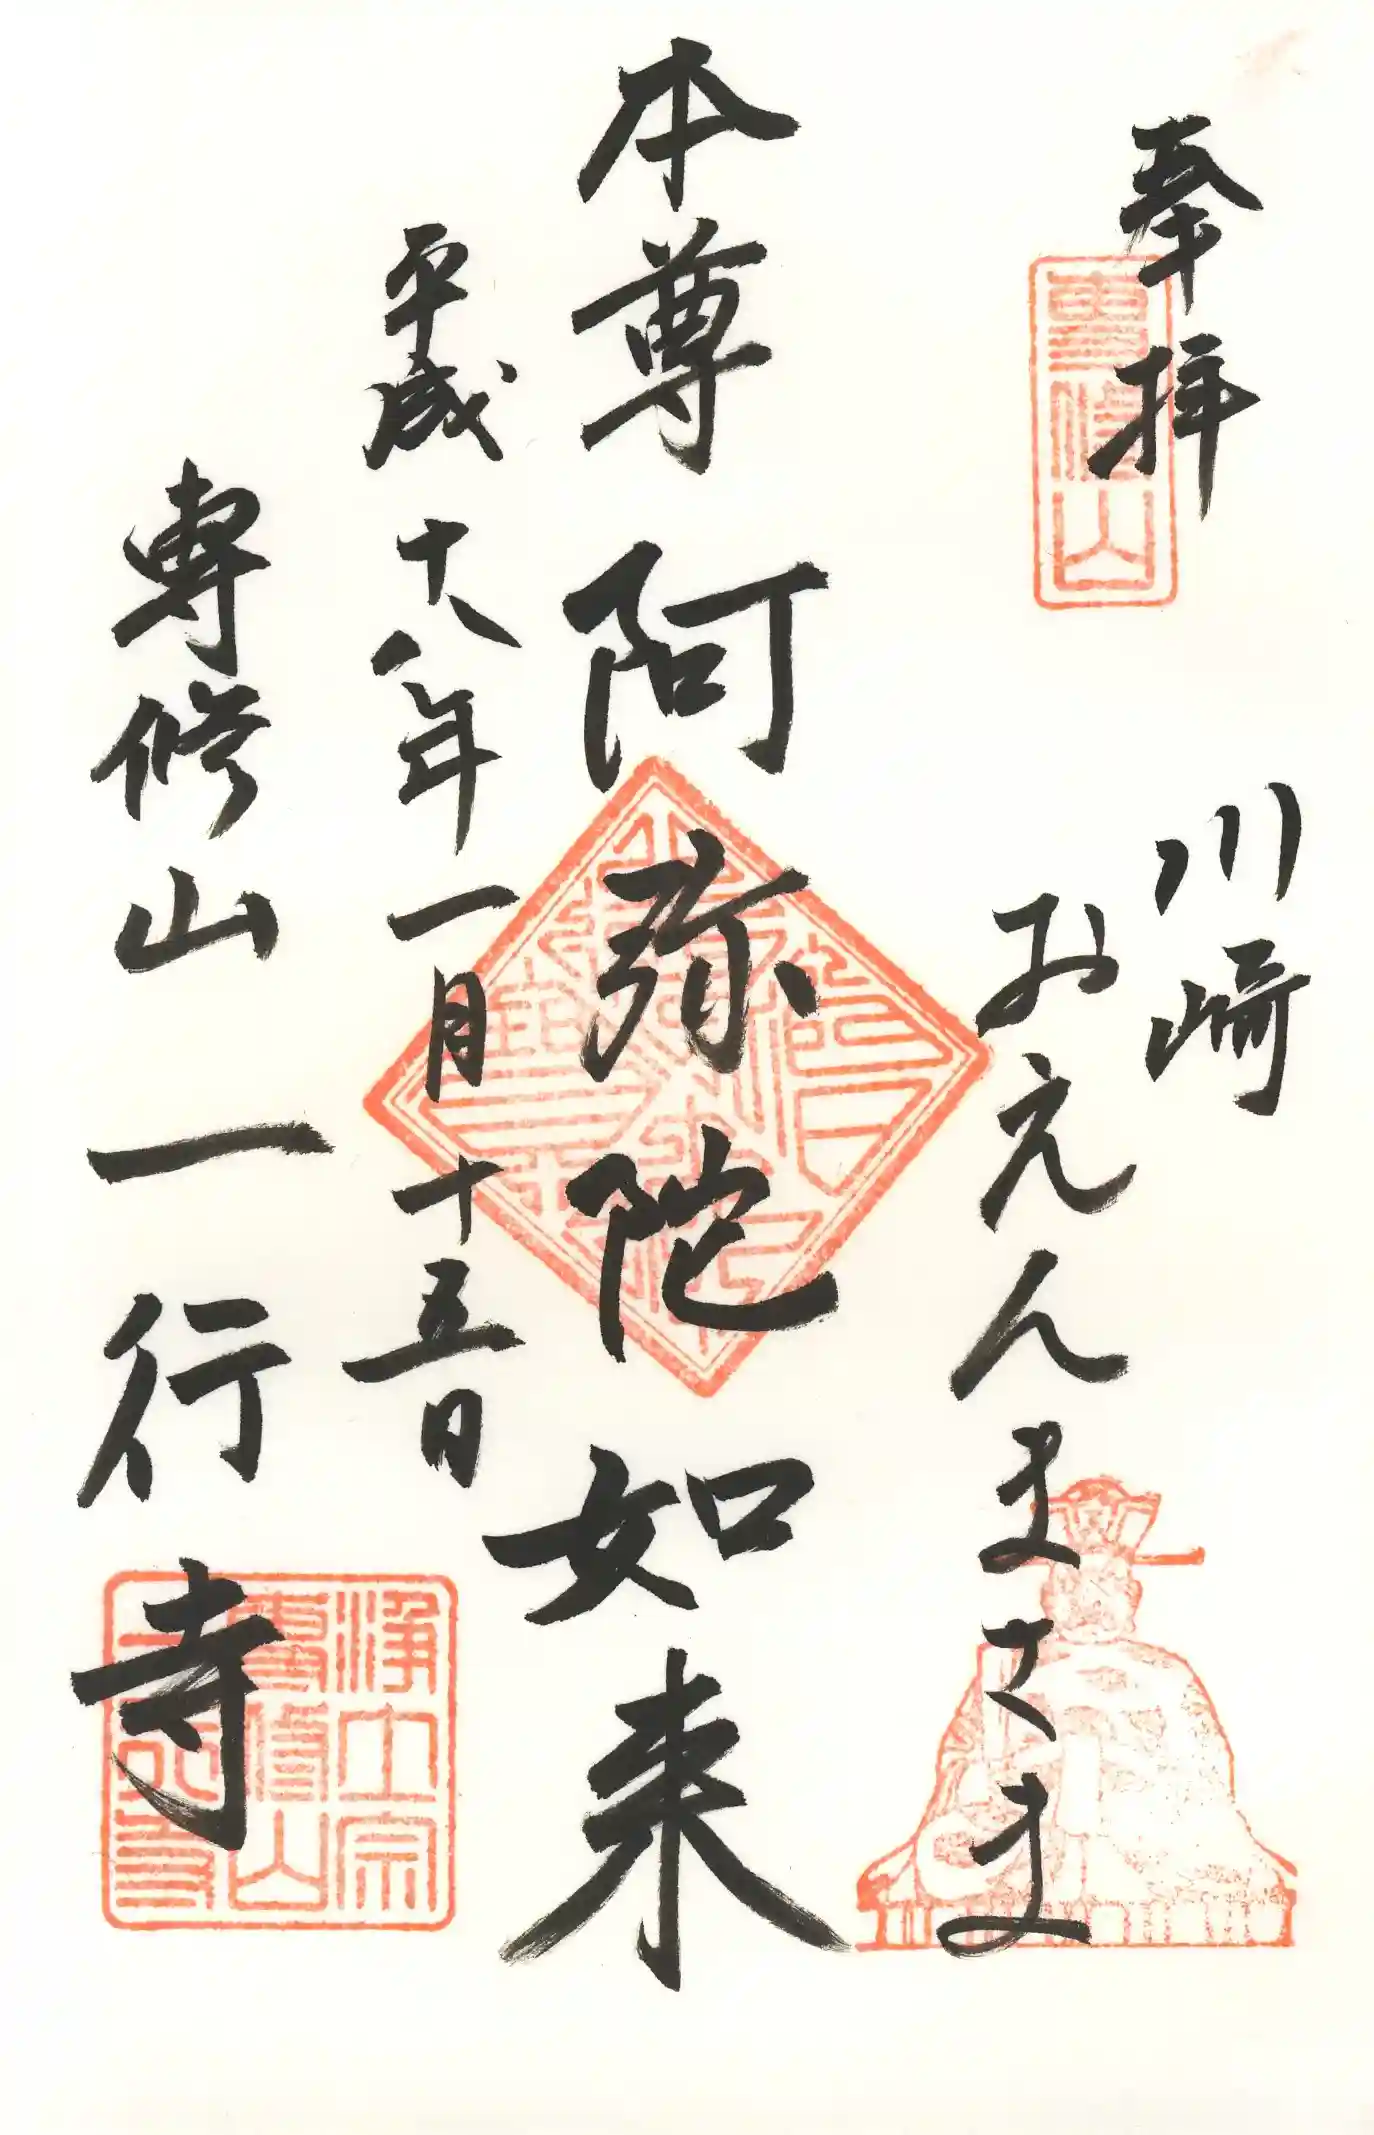 奉拝
川崎
おえんまさま
本尊 阿弥陀如来
平成十八年一月十五日
専修山一行寺
専修山
浄土宗
専修山
一行寺